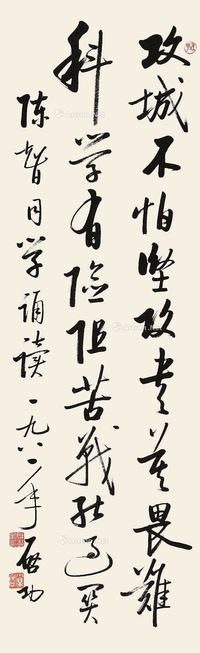 攻城不怕堅攻书莫畏難
科学有險阻苦战能过关
陈智同学诵读一九八二年启功